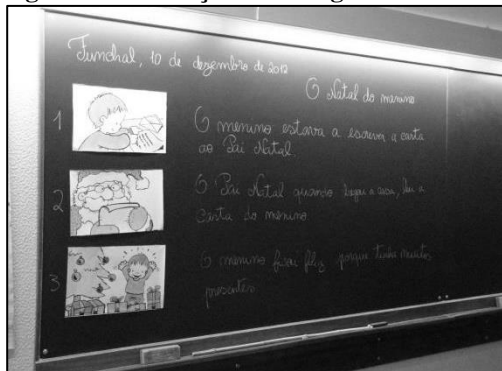 Funchal, 10 de dezembro de 2012
O Natal do menino
1
O menino estava a escrever a carta
ao Pai Natal.
2
O Pai Natal quando chegou a casa, leu a
carta do menino
3
O menino ficou feliz porque tinha muitos
presentes.